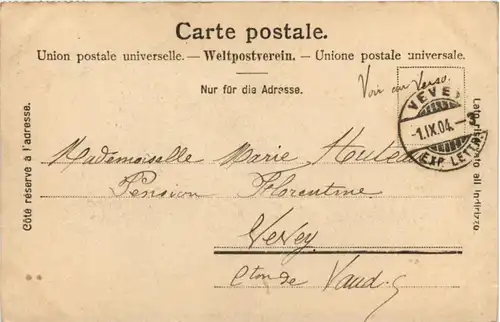 Carte postale.
Union postale universelle. — Weltpostverein. — Unione postale universale.
Nur für die Adresse.
Voir au Verso.
VEVEY
1.IX.04.
EXP. LETTR.
Côté réservé à l'adresse.
Lato riservato all'indirizzo
Mademoiselle Marie
Pension Florentine
Vevey
Cton de Vaud.